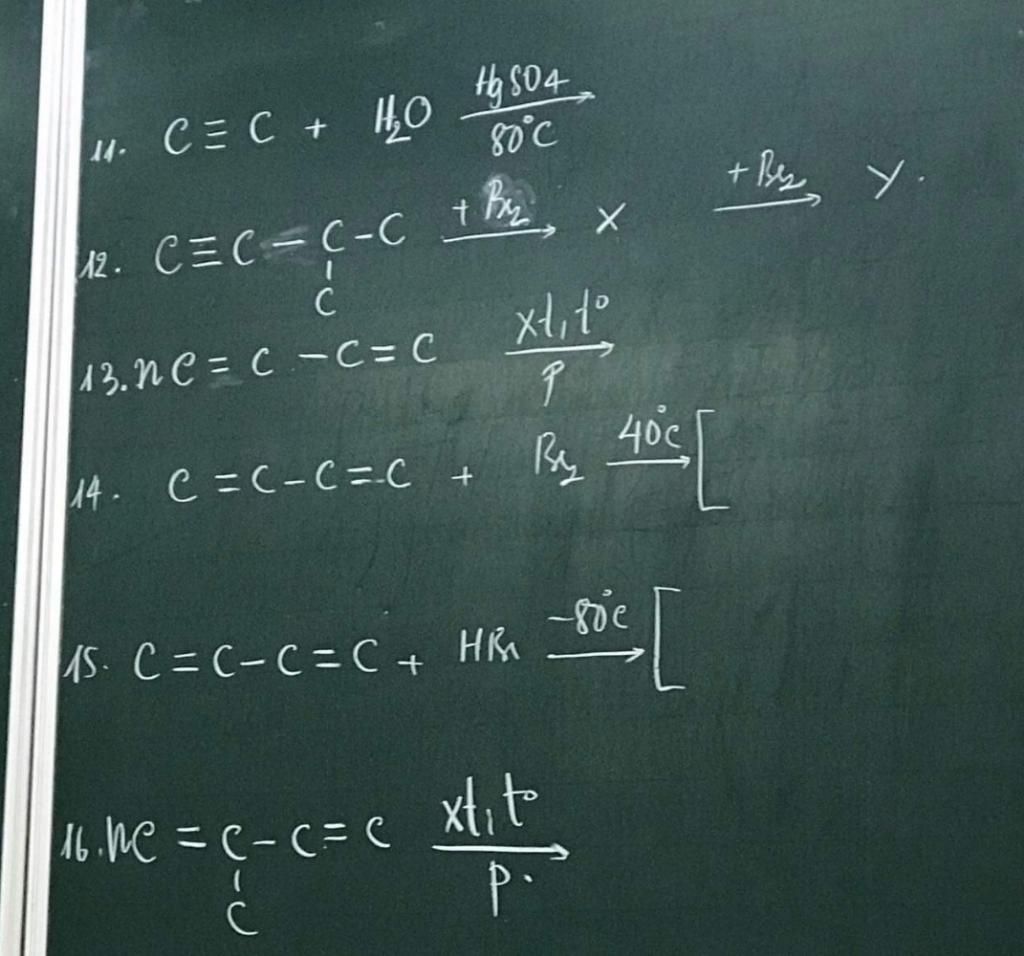 11. C ≡ C + H₂O HgSO4 80°C
12. C ≡ C – C – C + Br₂ X + Br₂ Y.
C
13. n C = C – C = C xt, t° p
14. C = C – C = C + Br₂ 40°C [
15. C = C – C = C + HBr –80°C [
16. n C = C – C = C xt, t° p.
C